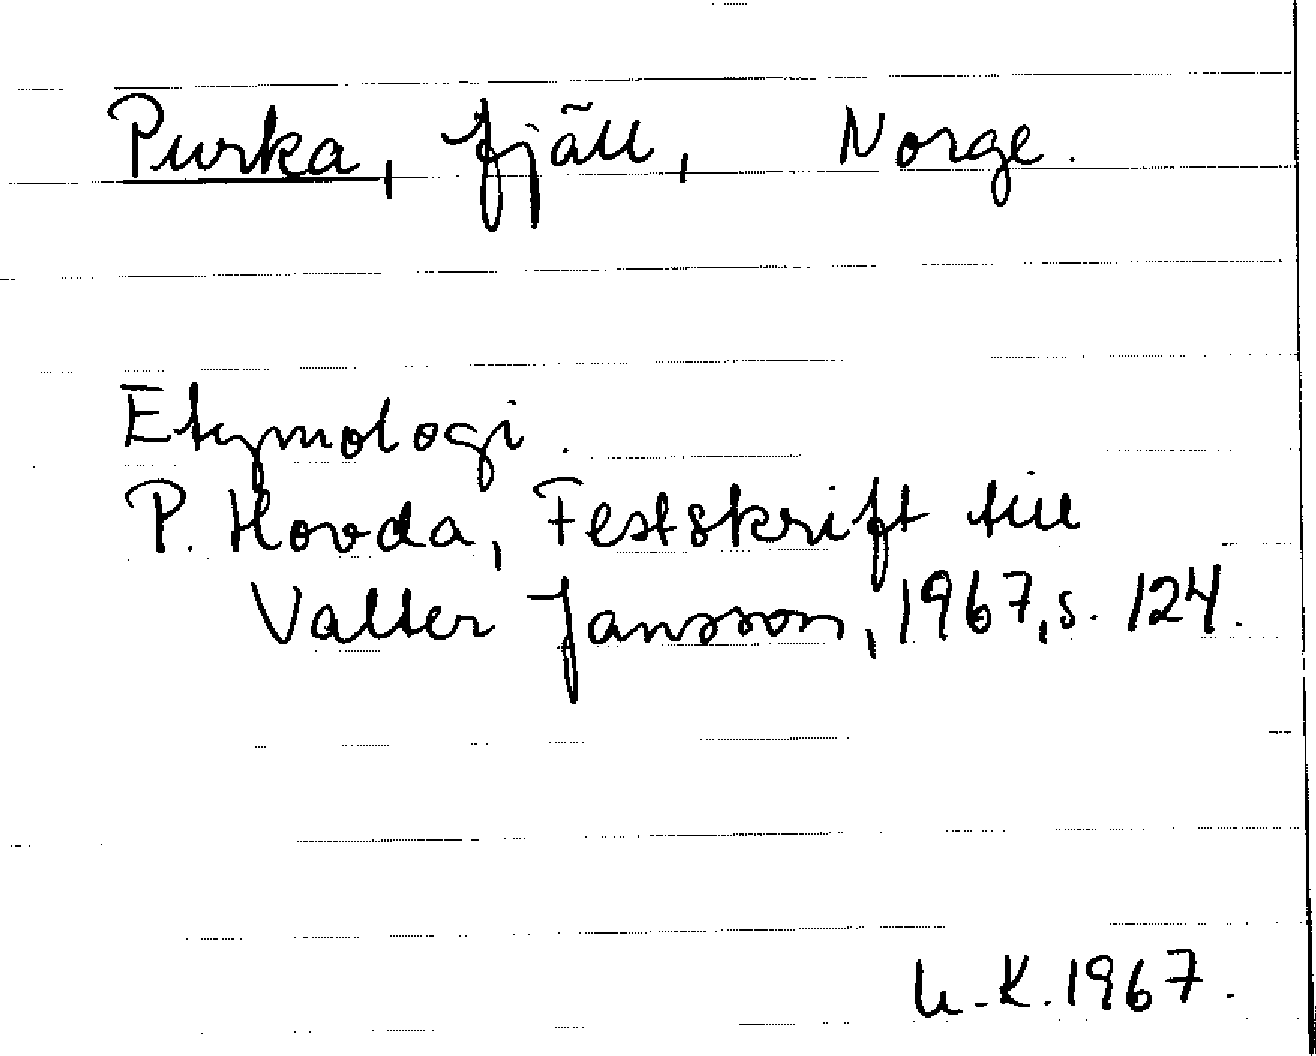 Purka, fjäll, Norge.
Etymologi.
P. Hovda, Festskrift till
Valter Jansson, 1967, s. 124.
K. 1967.